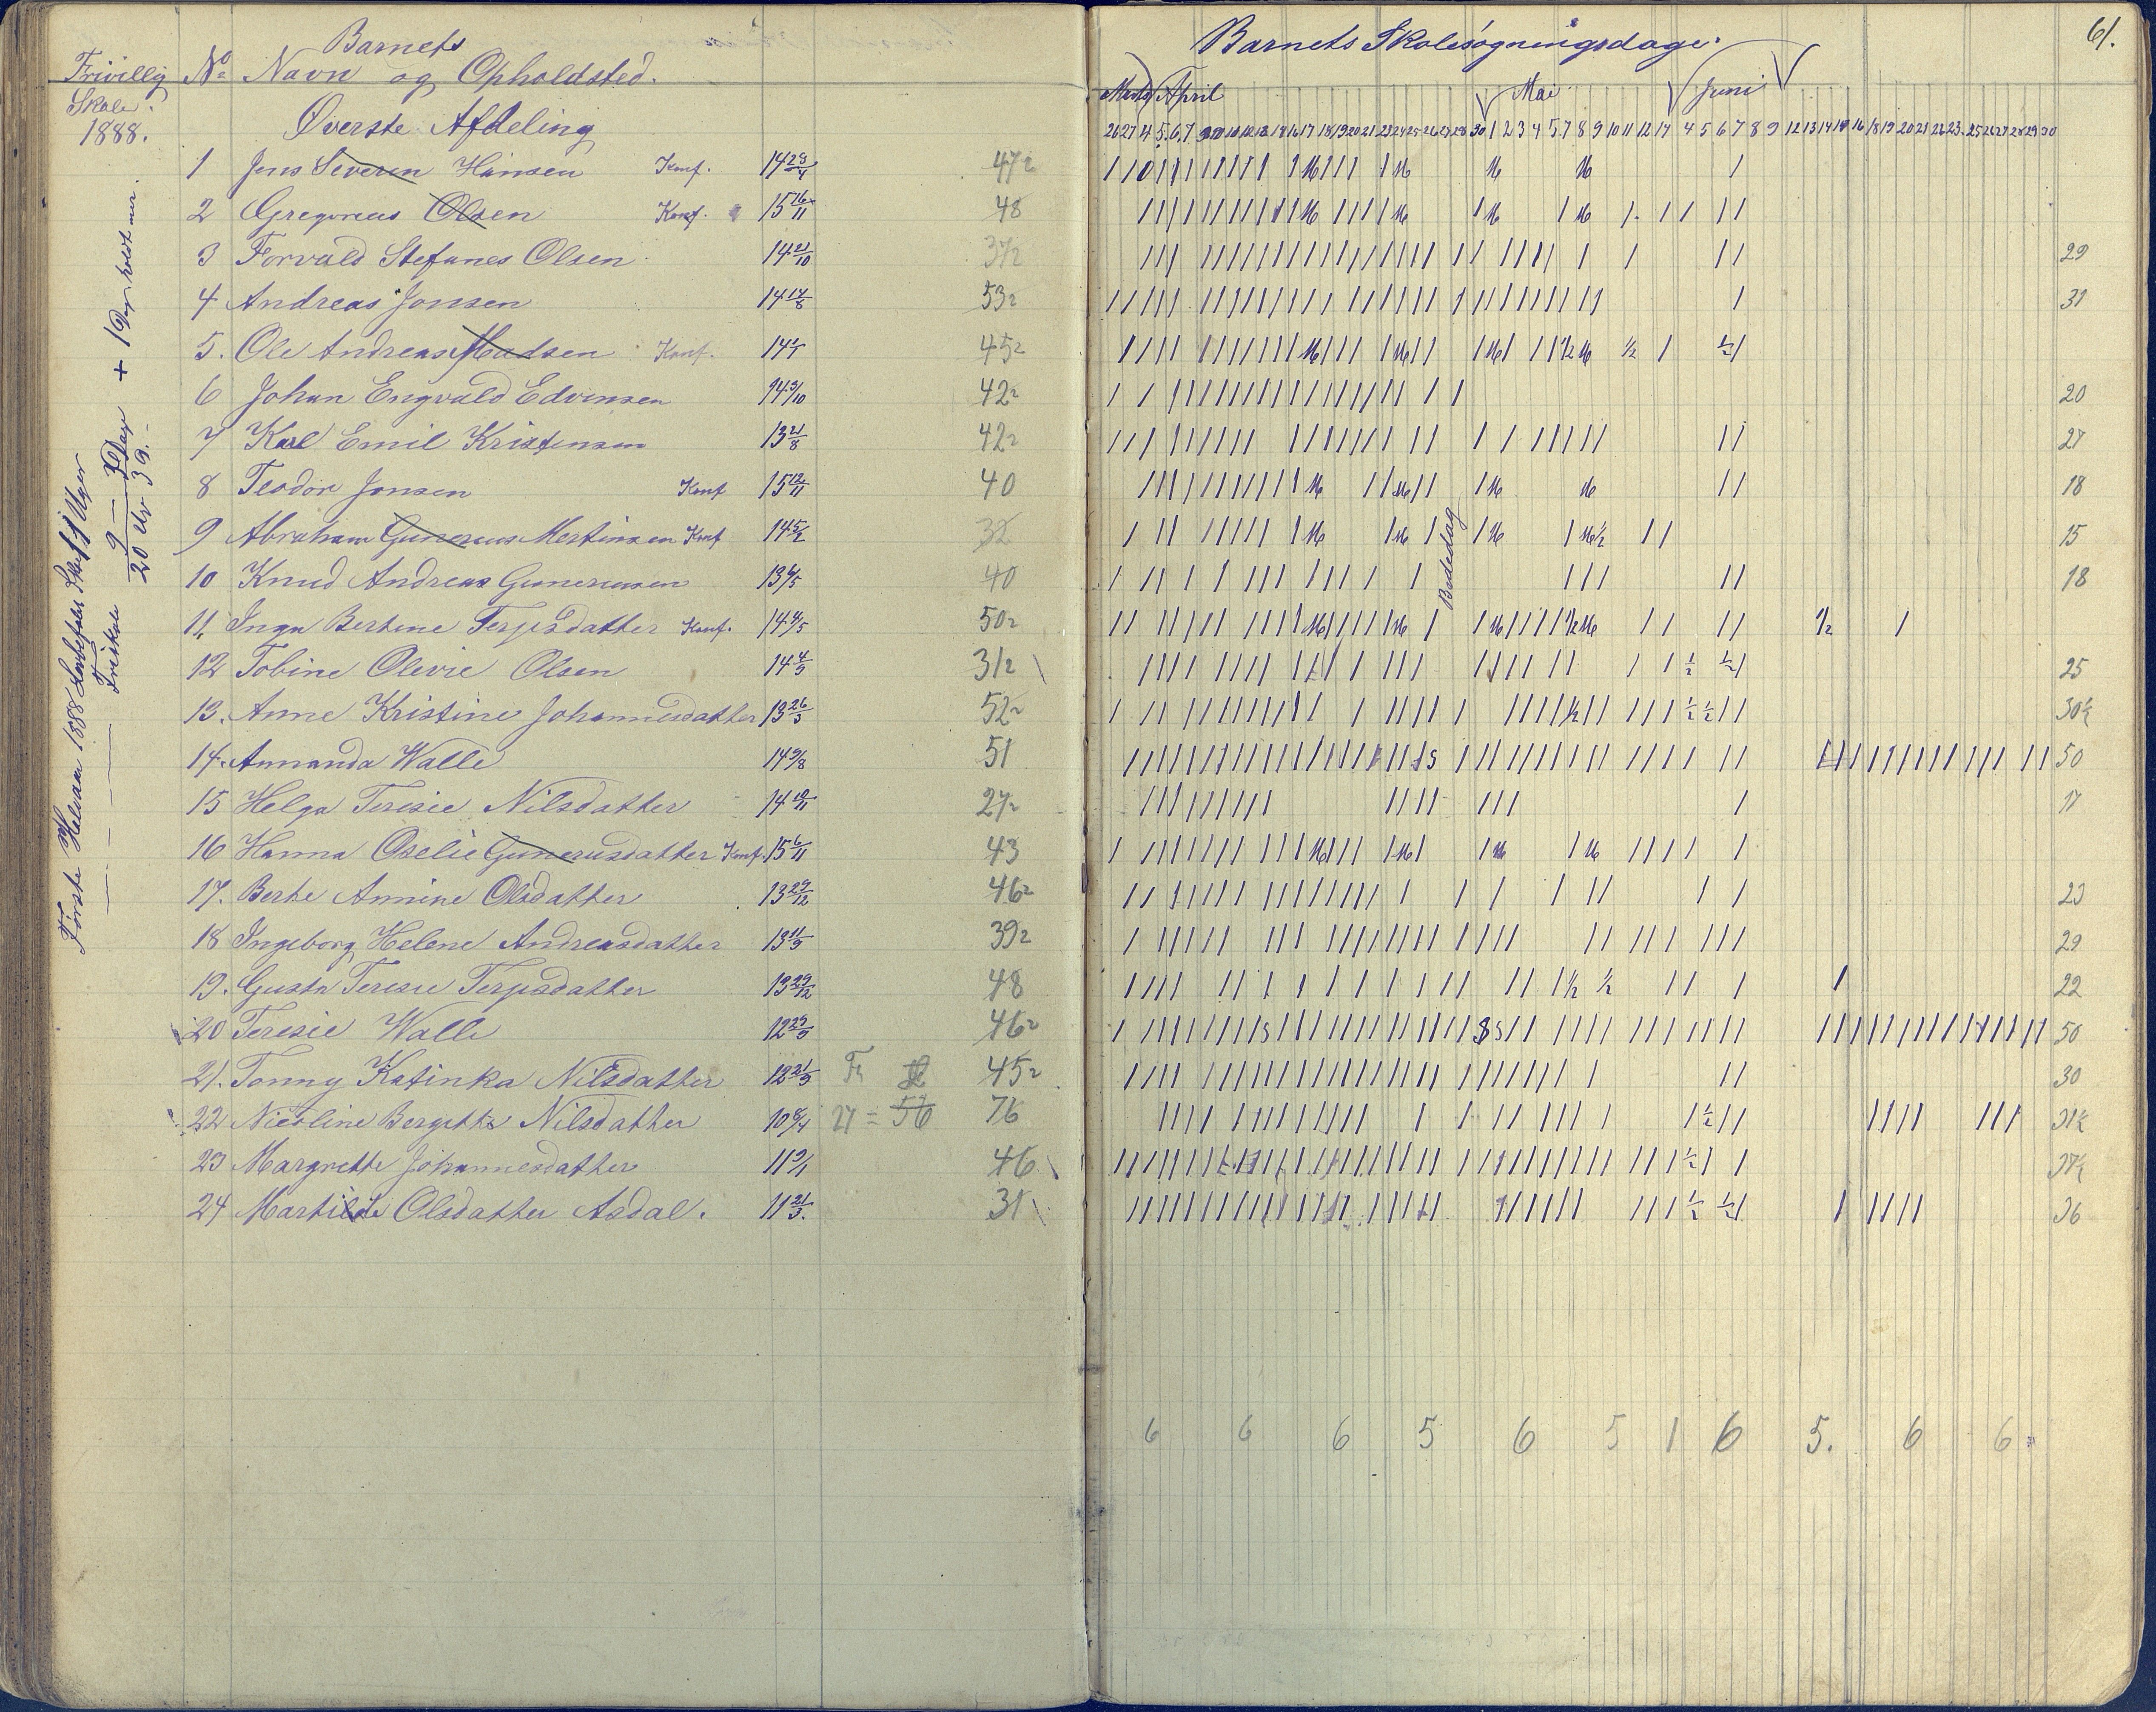 Barnets
Frivillig No Navn og Opholdsted.
Skole.
1888. Øverste Afdeling
1 Jens Severin Hansen Konf. 14 28/4 47 2
2 Gregorius Olsen Konf. 15 16/11 48
3 Torvald Stefanes Olsen 14 21/10 37 2
4 Andreas Jonsen 14 14/8 53 2
5. Ole Andreas Madsen Konf. 45 2
6 Johan Engvald Edvinsen 14 3/10 42 2
7 Karl Emil Kristensen 13 21/8 42 2
8 Teodor Jonsen Konf 15 12/11 40
9 Abraham Gunerius Mortinsen Konf 14 5/2 32
10 Knud Andreas Guneriusen 13 6/5 40
11, Inga Bertine Terjesdatter Konf. 14 4/5 50 2
12 Tobine Olevie Olsen 14 4/9 31 2
13. Anne Kristine Johannesdatter 13 26/3 52 2
14. Annanda Walle 14 9/8 51
15 Helga Teresie Nilsdatter 14 19/11 27 2
16 Hanna Oselie Gunerusdatter Konf. 15 6/11 43
17. Berte Annine Olsdatter 13 29/12 46 2
18 Ingeborg Helene Andreasdatter 13 11/9 39 2
19. Gusta Teresie Terjesdatter 13 29/12 48
20 Teresie Walle 12 23/9 46 2
21. Tonny Katinka Nilsdatter 12 21/9 Fr 45 2
22 Nicoline Bergitte Nilsdatter 10 8/4 27 = 50 76
23 Margrethe Johannesdatter 11 9/1 46
24 Martilde Olsdatter Asdal. 11 21/3. 31
Første Halvaar 1888 Lovbefalet Skole 11 Uger
Friskole 9
20 Ur 3 D.
+ 1 Dag holdt mer.
Barnets Skolesøgningsdage.
61.
Marts April Mai Juni
26 27 4 5 6 7 9 10 11 12 13 14 16 17 18 19 20 21 23 24 25 26 27 28 30 1 2 3 4 5 7 8 9 10 11 12 14 4 5 6 7 8 9 12 13 14 15 16 18 19 20 21 22 23 25 26 27 28 29 30
29
31
20
27
18
15
Bededag
18
25
30 1/2
50
17
23
29
22
50
30
31 1/2
37 1/2
36
6 6 6 5 6 5 1 6 5. 6 6